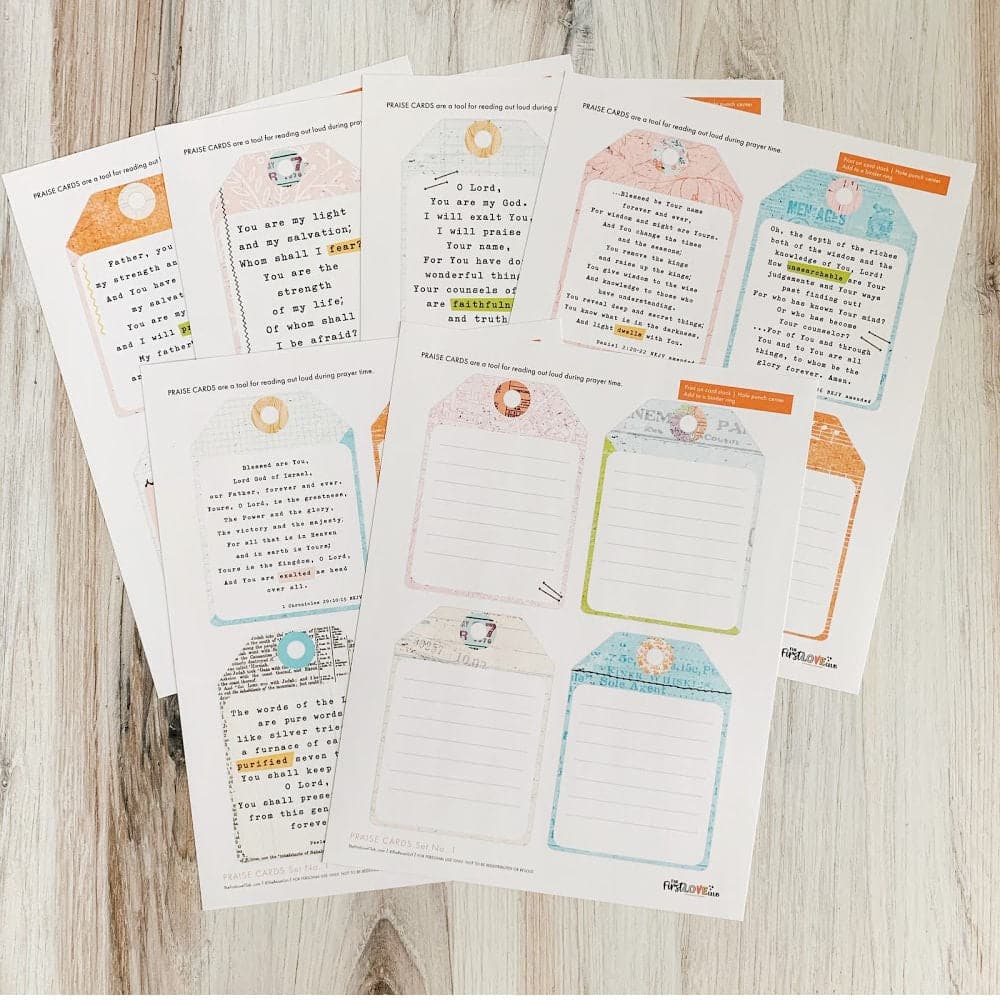 PRAISE CARDS are a tool for reading out
Father, you
my strength an
And You have
my salvat
You are my
and I will
My father'
PRAISE CARDS are a tool for reading out loud during pray
You are my light
and my salvation;
Whom shall I fear?
You are the
strength
of my life;
Of whom shall
I be afraid?
PRAISE CARDS are a tool for reading out loud during prayer time.
O Lord,
You are my God.
I will exalt You,
I will praise
Your name,
For You have do
wonderful thin
Your counsels of
are faithfuln
and truth
Hole punch center
PRAISE CARDS are a tool for reading out loud during prayer time.
Print on card stock | Hole punch center
Add to a binder ring
...Blessed be Your name
forever and ever,
For wisdom and might are Yours.
And You change the times
and the seasons;
You remove the kings
and raise up the kings;
You give wisdom to the wise
And knowledge to those who
have understanding.
You reveal deep and secret things;
You know what is in the darkness,
And light dwells with You.
Daniel 2:20-22 NKJV Amended
MEN-AGES
Oh, the depth of the riches
both of the wisdom and the
knowledge of You, Lord!
How unsearchable are Your
judgements and Your ways
past finding out!
For who has known Your mind?
Or who has become
Your counselor?
...For of You and through
You and to You are all
things, to whom be the
glory forever. Amen.
36 NKJV Amended
THE
First LOVE CLUB
PRAISE CARDS are a tool for reading out loud during prayer time.
Blessed are You,
Lord God of Israel,
our Father, forever and ever.
Yours, O Lord, is the greatness,
The Power and the glory,
The victory and the majesty;
For all that is in Heaven
and in earth is Yours;
Yours is the Kingdom, O Lord,
And You are exalted as head
over all.
1 Coronicles 29:10-15 NKJV
The words of the L
are pure words
like silver trie
a furnace of ea
purified seven t
You shall keep
O Lord,
You shall prese
from this gen
foreve
Psal
PRAISE CARDS Set No.
PRAISE CARDS are a tool for reading out loud during prayer time.
Print on card stock | Hole punch center
Add to a binder ring
10.00
15c, Po
WHISKE
Sole Agent
PRAISE CARDS Set No. 1
FOR PERSONAL USE ONLY. NOT TO BE REDISTRIBUTED OR RESOLD
THE
First LOVE CLUB